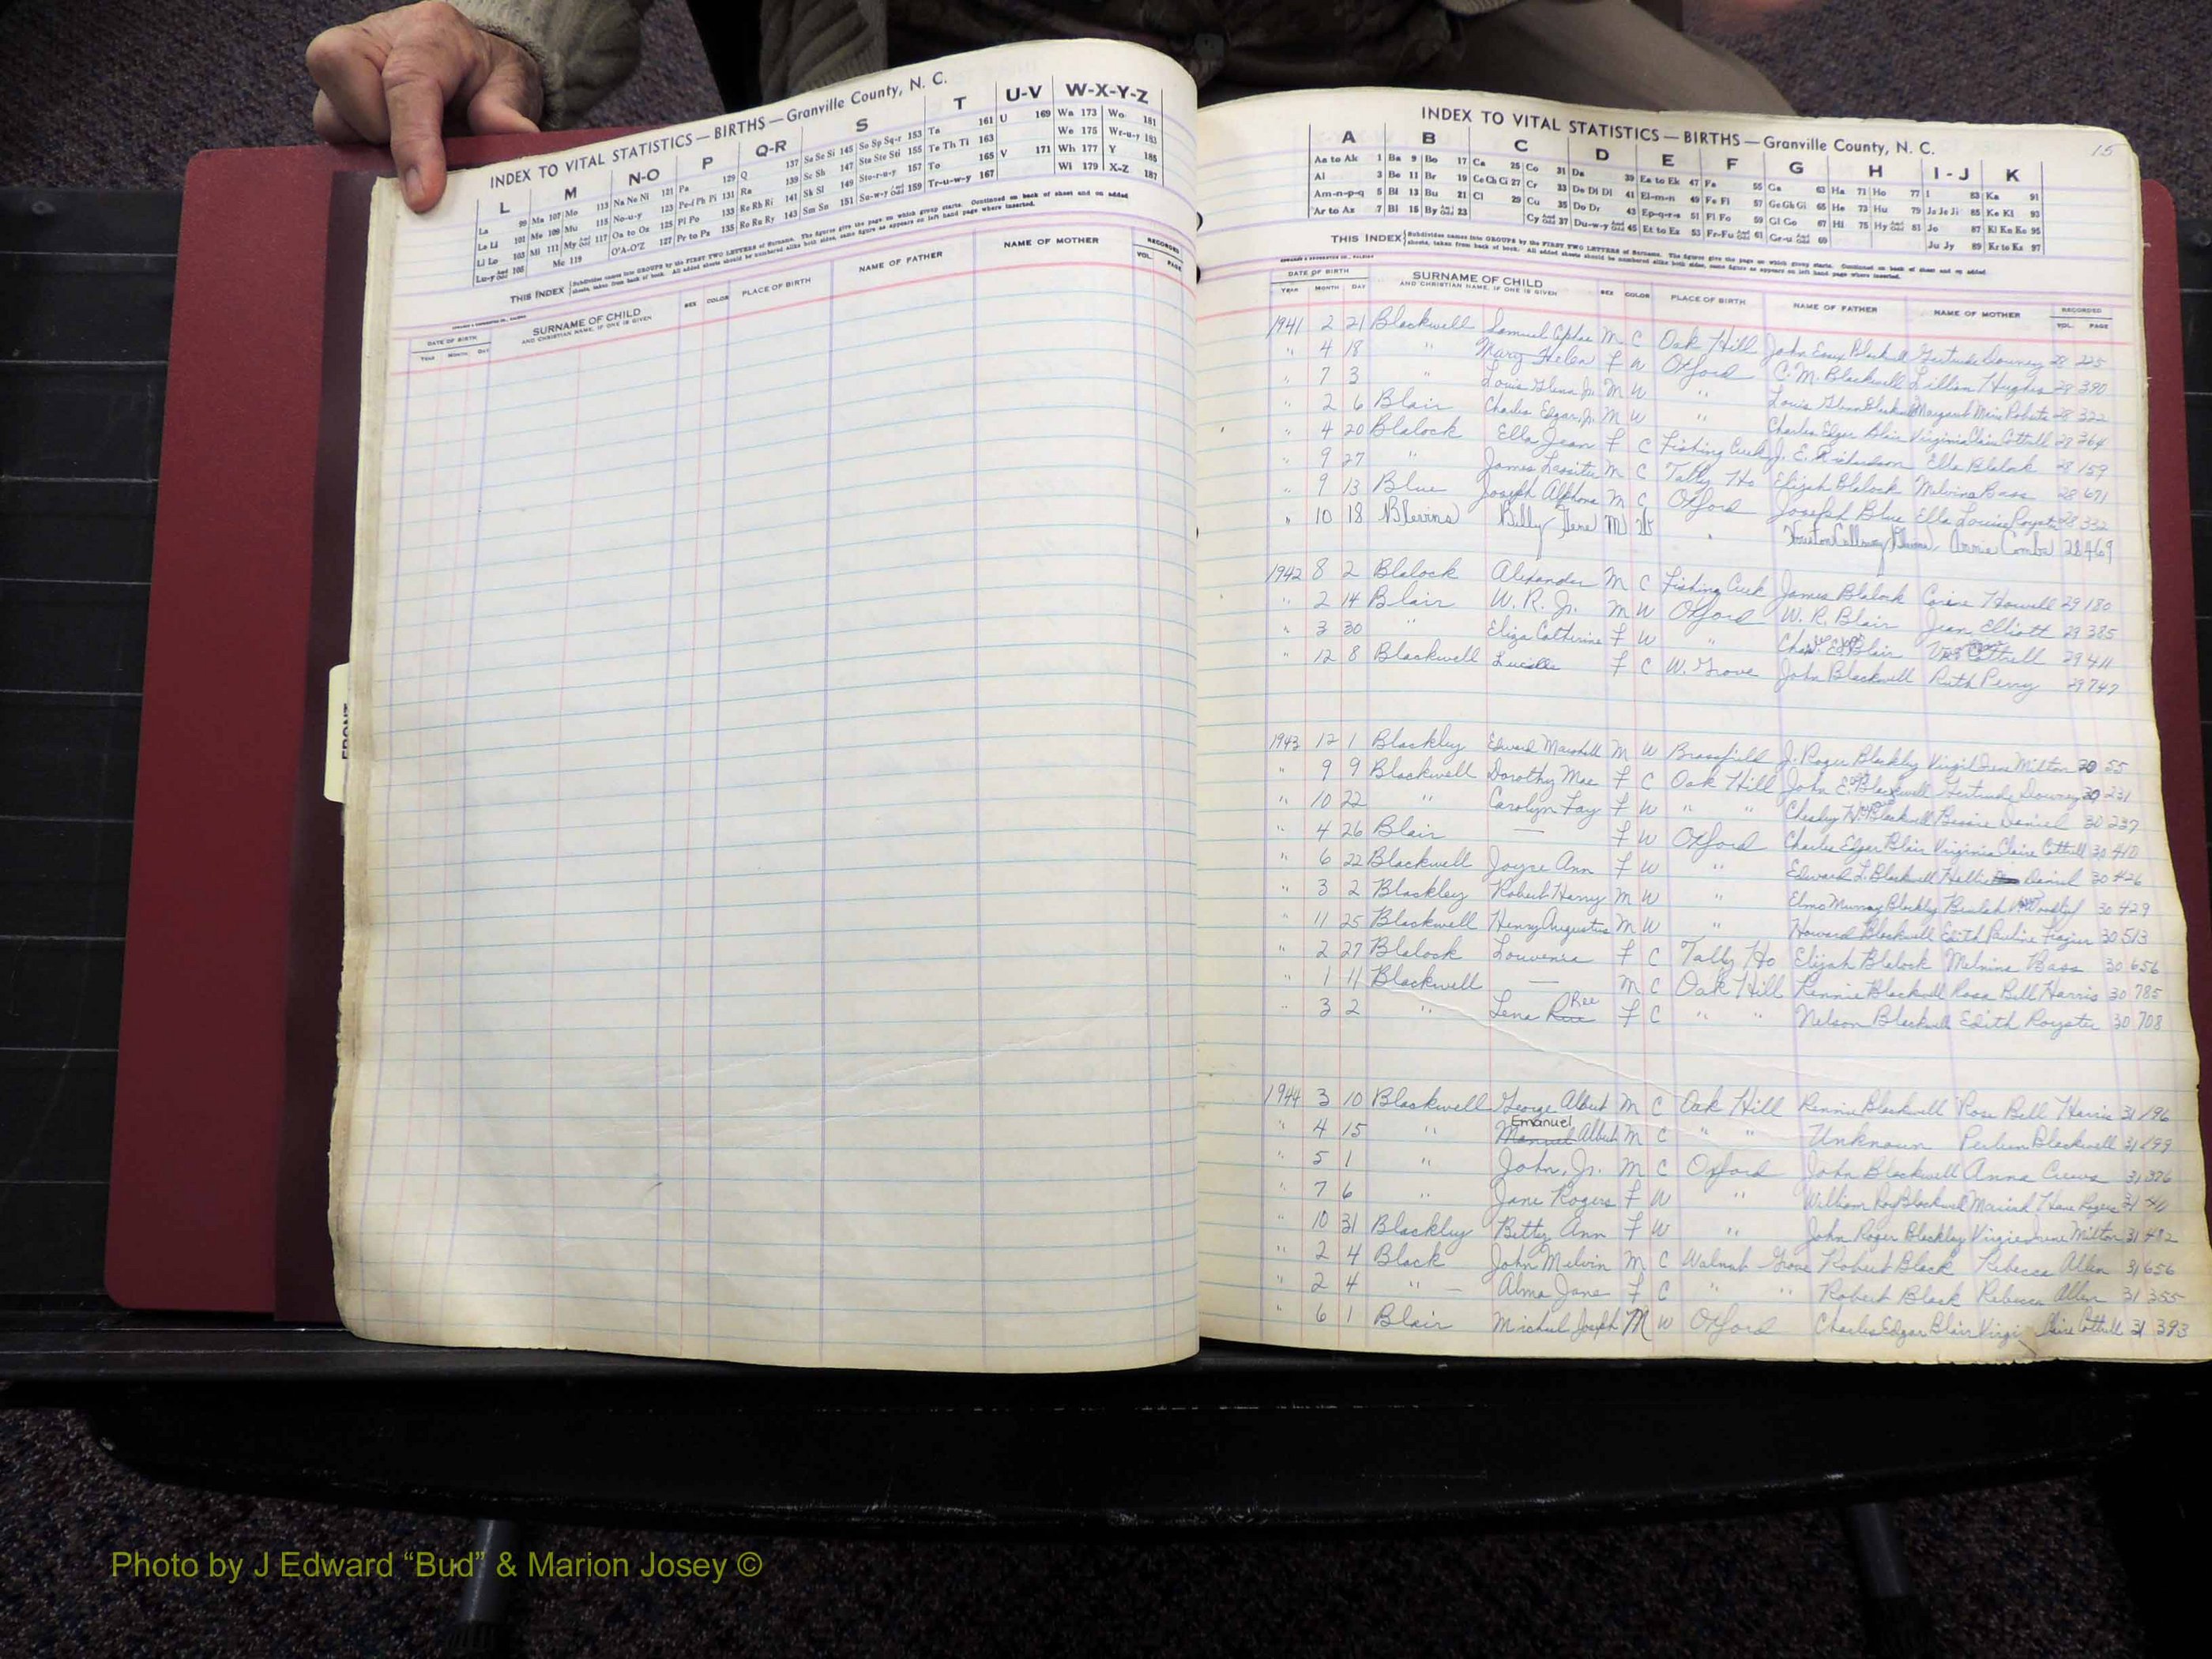 INDEX TO VITAL STATISTICS — BIRTHS — Granville County, N. C.
L M N-O P Q-R S T U-V W-X-Y-Z
La 99 Ma 107 Mo 113 Na Ne Ni 121 Pa 129 Q 137 Sa Se Si 145 So Sp Sq-r 153 Ta 161 U 169 Wa 173 Wo 181
La Li 101 Me 109 Mu 115 No-u-y 123 Pe-f Ph Pi 131 Ra 139 Sc Sh 147 Sta Ste Sti 155 Te Th Ti 163 We 175 Wr-u-y 183
Li Lo 103 Mi 111 My And Odd 117 Oa to Oz 125 Pl Po 133 Re Rh Ri 141 Sk Sl 149 Sto-r-u-y 157 To 165 V 171 Wh 177 Y 185
Lu-y And Odd 105 Mc 119 O'A-O'Z 127 Pr to Px 135 Ro Ru Ry 143 Sm Sn 151 Su-w-y And Odd 159 Tr-u-w-y 167 Wi 179 X-Z 187
THIS INDEX Subdivides names into GROUPS by the FIRST TWO LETTERS of Surname. The figures give the page on which group starts. Continued on back of sheet and on added
sheets, taken from back of book. All added sheets should be numbered alike both sides, same figure as appears on left hand page where inserted.
DATE OF BIRTH SURNAME OF CHILD SEX COLOR PLACE OF BIRTH NAME OF FATHER NAME OF MOTHER RECORDED
YEAR MONTH DAY AND CHRISTIAN NAME, IF ONE IS GIVEN VOL. PAGE
FRONT
15
INDEX TO VITAL STATISTICS — BIRTHS — Granville County, N. C.
A B C D E F G H I - J K
Aa to Ak 1 Ba 9 Bo 17 Ca 25 Co 31 Da 39 Ea to Ek 47 Fa 55 Ga 63 Ha 71 Ho 77 I 83 Ka 91
Al 3 Be 11 Br 19 Ce Ch Ci 27 Cr 33 De Di Dl 41 El-m-n 49 Fe Fi 57 Ge Gh Gi 65 He 73 Hu 79 Ja Je Ji 85 Ke Kl 93
Am-n-p-q 5 Bi 13 Bu 21 Cl 29 Cu 35 Do Dr 43 Ep-q-r-s 51 Fl Fo 59 Gl Go 67 Hi 75 Hy And Odd 81 Jo 87 Kl Kn Ko 95
Ar to Az 7 Bl 15 By And Odd 23 Cy And Odd 37 Du-w-y And Odd 45 Et to Ez 53 Fr-Fu And Odd 61 Gr-u And Odd 69 Ju Jy 89 Kr to Kz 97
THIS INDEX Subdivides names into GROUPS by the FIRST TWO LETTERS of Surname. The figures give the page on which group starts. Continued on back of sheet and on added
sheets, taken from back of book. All added sheets should be numbered alike both sides, same figure as appears on left hand page where inserted.
DATE OF BIRTH SURNAME OF CHILD SEX COLOR PLACE OF BIRTH NAME OF FATHER NAME OF MOTHER RECORDED
YEAR MONTH DAY AND CHRISTIAN NAME, IF ONE IS GIVEN VOL. PAGE
1941 2 21 Blackwell Samuel M C Oak Hill John Essex Blackwell Gertrude Downey 28 225
" 4 18 " Mary Helen F W Oxford C. M. Blackwell Lillian Hughes 28 390
" 7 3 " Louis Glenn Jr. M W " Louis Glenn Blackwell Margaret Roberts 28 322
" 2 6 Blair Charles Edgar, Jr. M W " Charles Edgar Blair Virginia Claire Cottrell 28 364
" 4 20 Blalock Ella Jean F C Fishing Creek J. E. Richardson Ella Blalock 28 159
" 9 27 " James Lassiter M C Tally Ho Elijah Blalock Melvina Bass 28 671
" 9 13 Blue Joseph Alphons M C Oxford Joseph Blue Ella Louise Royster 28 332
" 10 18 Blevins Billy Gene M W " Houston Calloway Blevins Annie Combs 28 469
1942 8 2 Blalock Alexander M C Fishing Creek James Blalock Corine Howell 29 180
" 2 14 Blair W. R. Jr. M W Oxford W. R. Blair Jean Elliott 29 385
" 3 30 " Eliza Catherine F W " Chas. Blair Cottrell 29 411
" 12 8 Blackwell Lucille F C W. Grove John Blackwell Ruth Perry 29 747
1943 12 1 Blackley Edward Marshall M W Brassfield J. Roger Blackley Virgil Irene Milton 30 55
" 9 9 Blackwell Dorothy Mae F C Oak Hill John E. Blackwell Gertrude Downey 30 231
" 10 22 " Carolyn Fay F W " " Chesley Blackwell Bessie Daniel 30 237
" 4 26 Blair — F W Oxford Charles Edgar Blair Virginia Claire Cottrell 30 410
" 6 22 Blackwell Joyce Ann F W " Edward L. Blackwell Hallie Daniel 30 426
" 3 2 Blackley Robert Harry M W " Elmo Murray Blackley Beulah Woodlief 30 429
" 11 25 Blackwell Henry Augustus M W " Howard Blackwell Edith Pauline Frazier 30 513
" 2 27 Blalock Louvenia F C Tally Ho Elijah Blalock Melvina Bass 30 656
" 1 11 Blackwell — M C Oak Hill Rennie Blackwell Rosa Bell Harris 30 785
" 3 2 " Lena Rhee F C " " Nelson Blackwell Edith Royster 30 708
1944 3 10 Blackwell George Albert M C Oak Hill Rennie Blackwell Rose Bell Harris 31 196
" 4 15 " Emanuel Albert M C " " Unknown Perleen Blackwell 31 199
" 5 1 " John, Jr. M C Oxford John Blackwell Anna Crews 31 376
" 7 6 " Jane Rogers F W " William Roy Blackwell Mariah Rogers 31 411
" 10 31 Blackley Betty Ann F W " John Roger Blackley Virgie Irene Milton 31 482
" 2 4 Black John Melvin M C Walnut Grove Robert Black Rebecca Allen 31 656
" 2 4 " — Alma Jane F C " " Robert Black Rebecca Allen 31 355
" 6 1 Blair Michael Joseph M W Oxford Charles Edgar Blair Virgi Claire Cottrell 31 393
Photo by J Edward “Bud” & Marion Josey ©